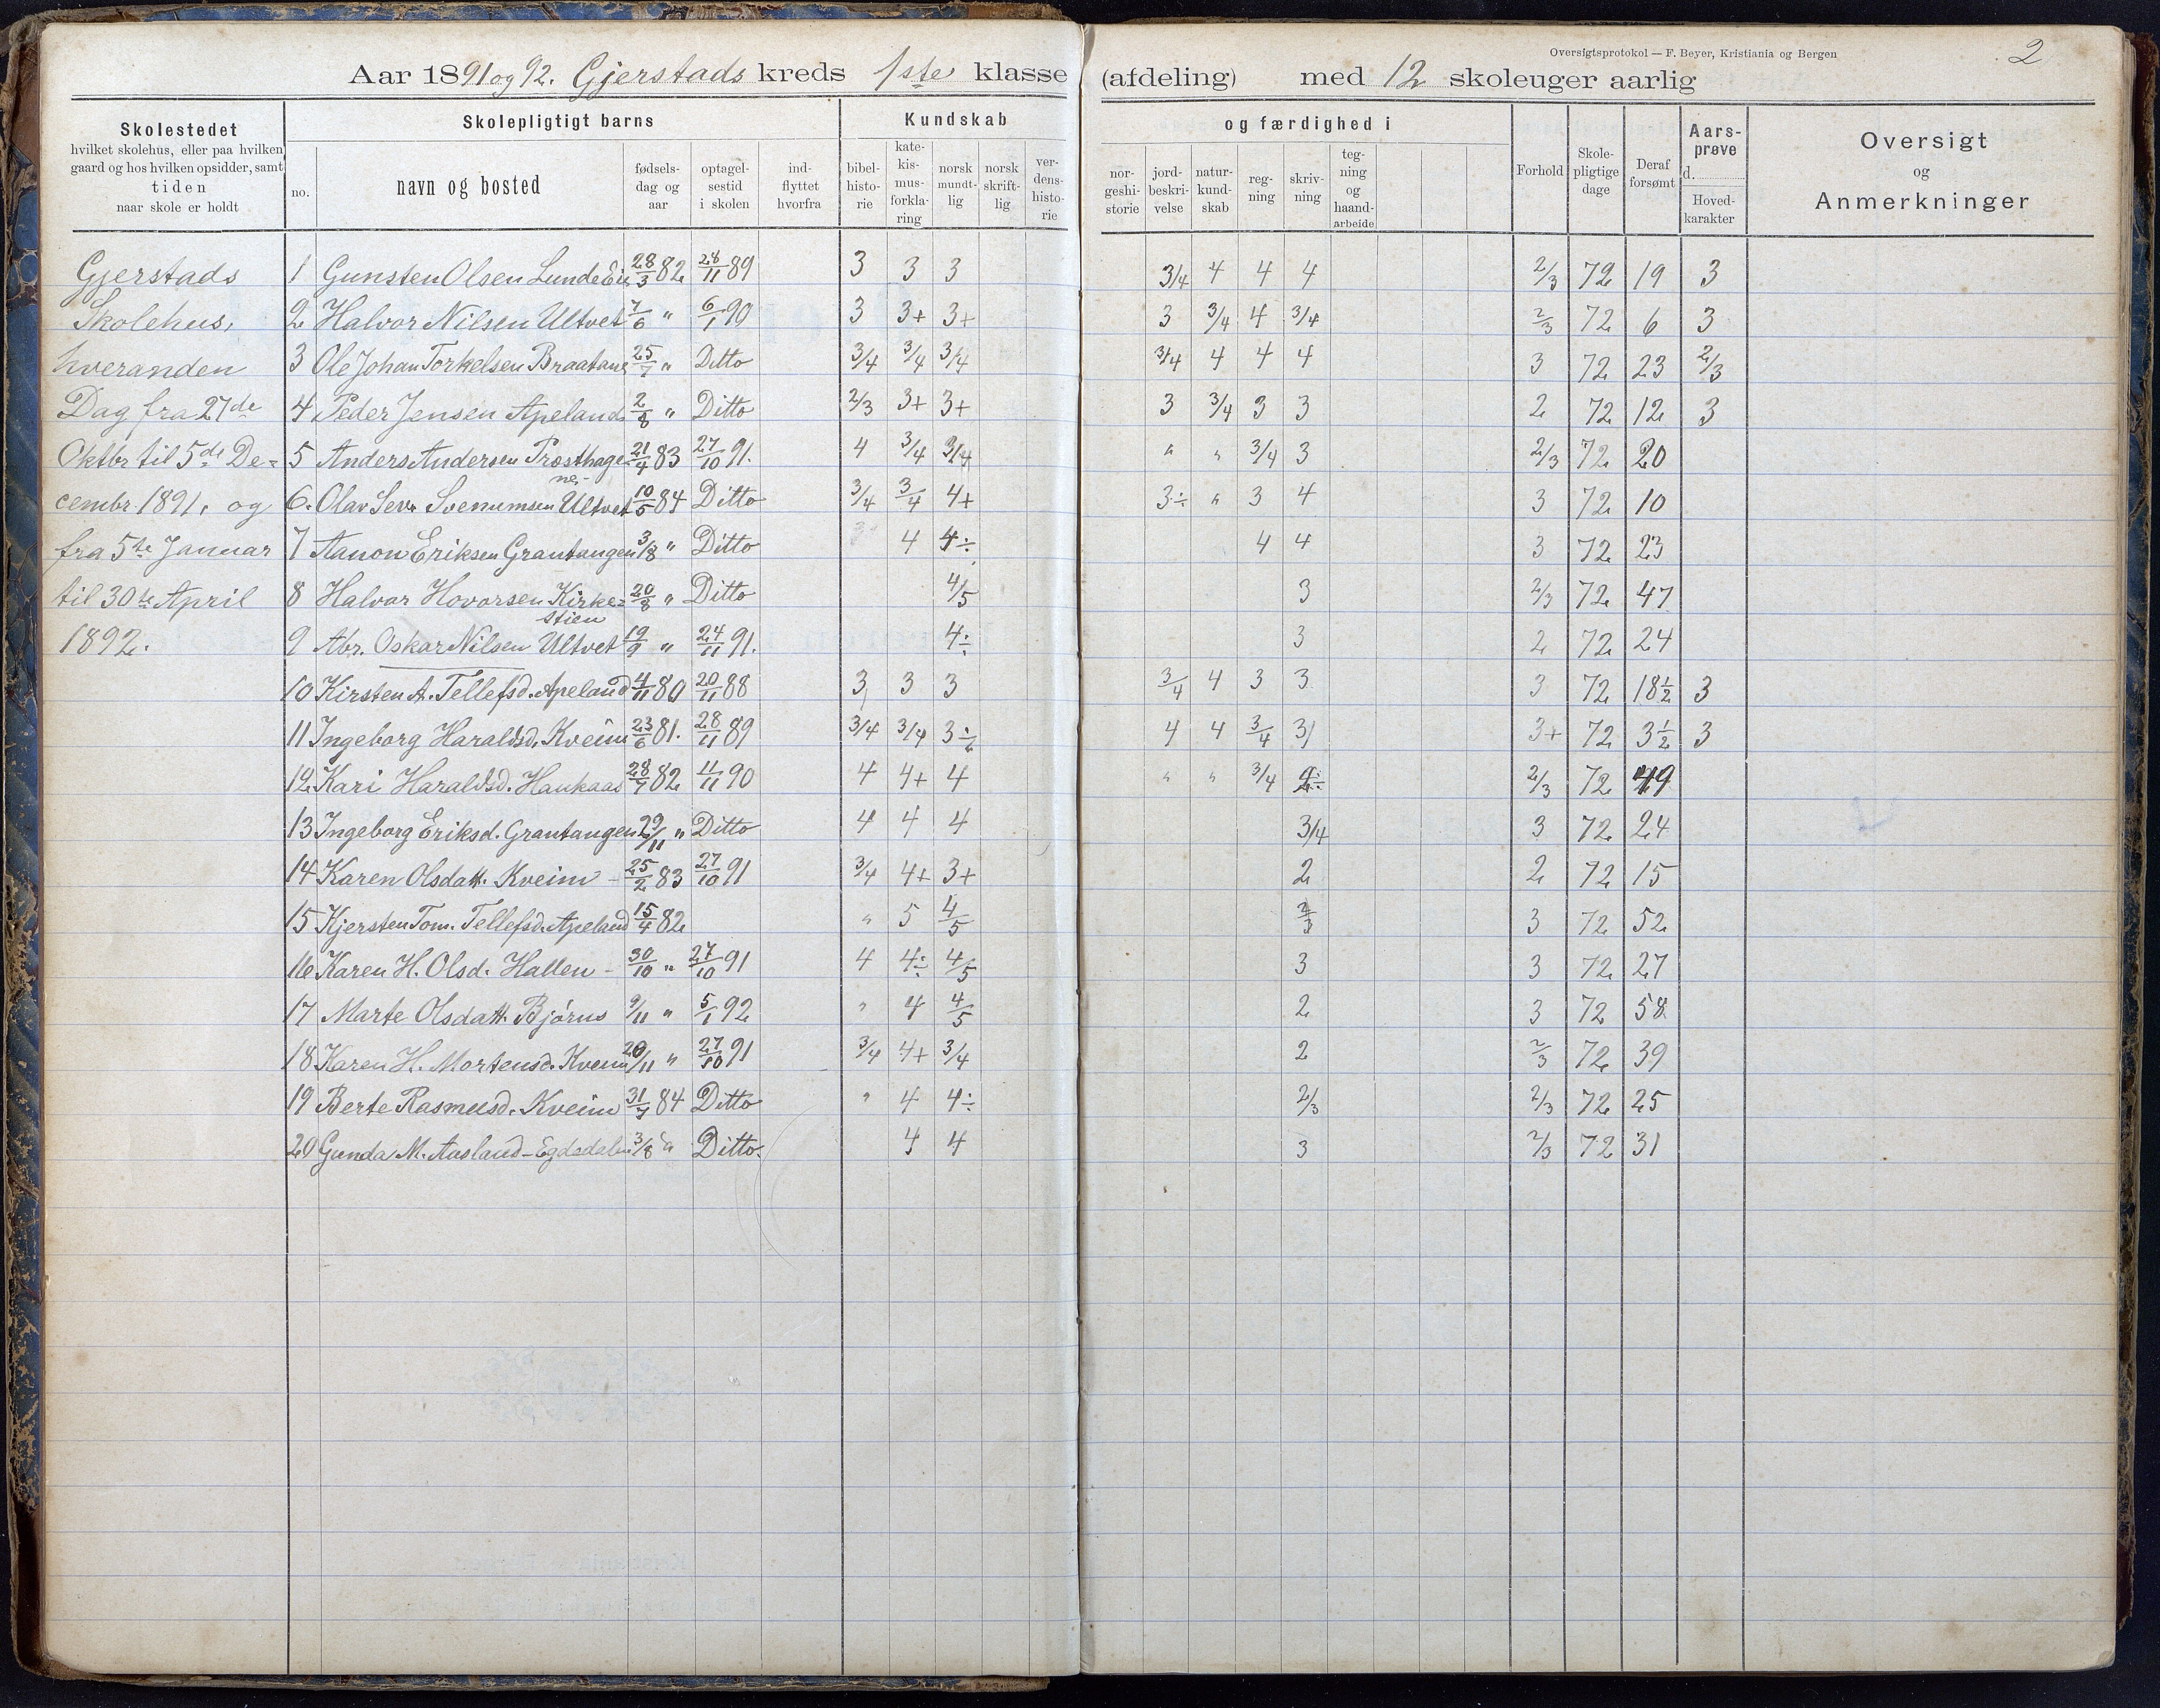 Oversigtsprotokol — F. Beyer, Kristiania og Bergen
2
Aar 1891 og 92. Gjerstads kreds 1ste klasse (afdeling) med 12 skoleuger aarlig
Skolestedet
hvilket skolehus, eller paa hvilken
gaard og hos hvilken opsidder, samt
tiden
naar skole er holdt
Skolepligtigt barns
no.
navn og bosted
fødsels-
dag og
aar
optagel-
sestid
i skolen
ind-
flyttet
hvorfra
Kundskab
bibel-
histo-
rie
kate-
kis-
mus-
forkla-
ring
norsk
mundt-
lig
norsk
skrift-
lig
ver-
dens-
histo-
rie
og færdighed i
nor-
geshi-
storie
jord-
beskri-
velse
natur-
kund-
skab
reg-
ning
skriv-
ning
teg-
ning
og
haand-
arbeide
Forhold
Skole-
pligtige
dage
Deraf
forsømt
Aars-
prøve
d.
Hoved-
karakter
Oversigt
og
Anmerkninger
Gjerstads
Skolehus,
hveranden
Dag fra 27de
Oktbr til 5te De-
cembr 1891, og
fra 5te Januar
til 30te April
1892.
1 Gunsten Olsen Lunde Eie 28/3 82 28/11 89 3 3 3 3/4 4 4 4 2/3 72 19 3
2 Halvor Nilsen Ultvet 7/6 " 6/1 90 3 3+ 3+ 3 3/4 4 3/4 2/3 72 6 3
3 Ole Johan Torkelsen Braatane 25/7 " Ditto 3/4 3/4 3/4 3/4 4 4 4 3 72 23 2/3
4 Peder Jensen Apeland 2/8 " Ditto 2/3 3+ 3+ 3 3/4 3 3 2 72 12 3
5 Anders Andersen Præsthage- 21/4 83 27/10 91. 4 3/4 3/4 " " 3/4 3 2/3 72 20
ne-
6. Olav Sev. Svenumsen Ultvet 10/5 84 Ditto 3/4 3/4 4+ 3÷ " 3 4 3 72 10
7 Aanon Eriksen Grantangen 3/8 " Ditto 4 4÷ 4 4 3 72 23
8 Halvor Hovorsen Kirke- 20/8 " Ditto 4/5 3 2/3 72 47
stien
9 Abr. Oskar Nilsen Ultvet 19/9 " 24/11 91. 4÷ 3 2 72 24
10 Kirsten A. Tellefsd. Apeland 4/11 80 20/11 88 3 3 3 3/4 4 3 3 3 72 18½ 3
11 Ingeborg Haraldsd. Kveim 23/6 81. 28/11 89 3/4 3/4 3÷ 4 4 3/4 3 3+ 72 3½ 3
12 Kari Haraldsd. Haukaas 28/7 82 4/11 90 4 4+ 4 " " 3/4 2÷ 2/3 72 49
13 Ingeborg Eriksd. Grantangen 29/11 " Ditto 4 4 4 3/4 3 72 24
14 Karen Olsdatt. Kveim - 25/2 83 27/10 91 3/4 4+ 3+ 2 2 72 15
15 Kjersten Tom. Tellefsd. Apeland 15/4 82 " 5 4/5 2/3 3 72 52
16 Karen H. Olsd. Hallen - 30/10 " 27/10 91 4 4÷ 4/5 3 3 72 27
17 Marte Olsdatt. Bjørus 9/11 " 5/1 92 " 4 4/5 2 3 72 58
18 Karen H. Mortensd. Kveim 20/11 " 27/10 91 3/4 4+ 3/4 2 2/3 72 39
19 Berte Rasmusd. Kveim 31/7 84 Ditto " 4 4÷ 2/3 2/3 72 25
20 Gunda M. Aasland - Egdedalen 3/8 " Ditto. 4 4 3 2/3 72 31